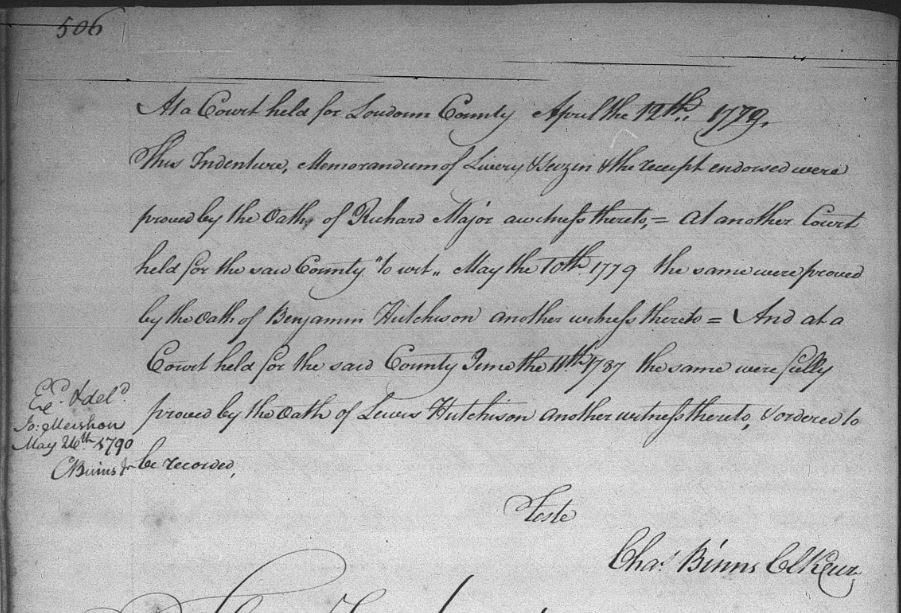 506
At a Court held for Loudoun County April the 12th.. 1779.
This Indenture, Memorandum of Livery & Seizin & the receipt endorsed were
proved by the Oath, of Richard Major a witness thereto, = At another Court
held for the said County "to wit" May the 10th 1779 the same were proved
by the Oath of Benjamin Hutchison another witness thereto = And at a
Court held for the said County June the 11th 1787 the same were fully
proved by the Oath of Lewis Hutchison another witness thereto, & ordered to
be recorded,
Exd. & deld.
to:
May 24th 1790
CBinns Jr
Teste
Chas. Binns ClCur